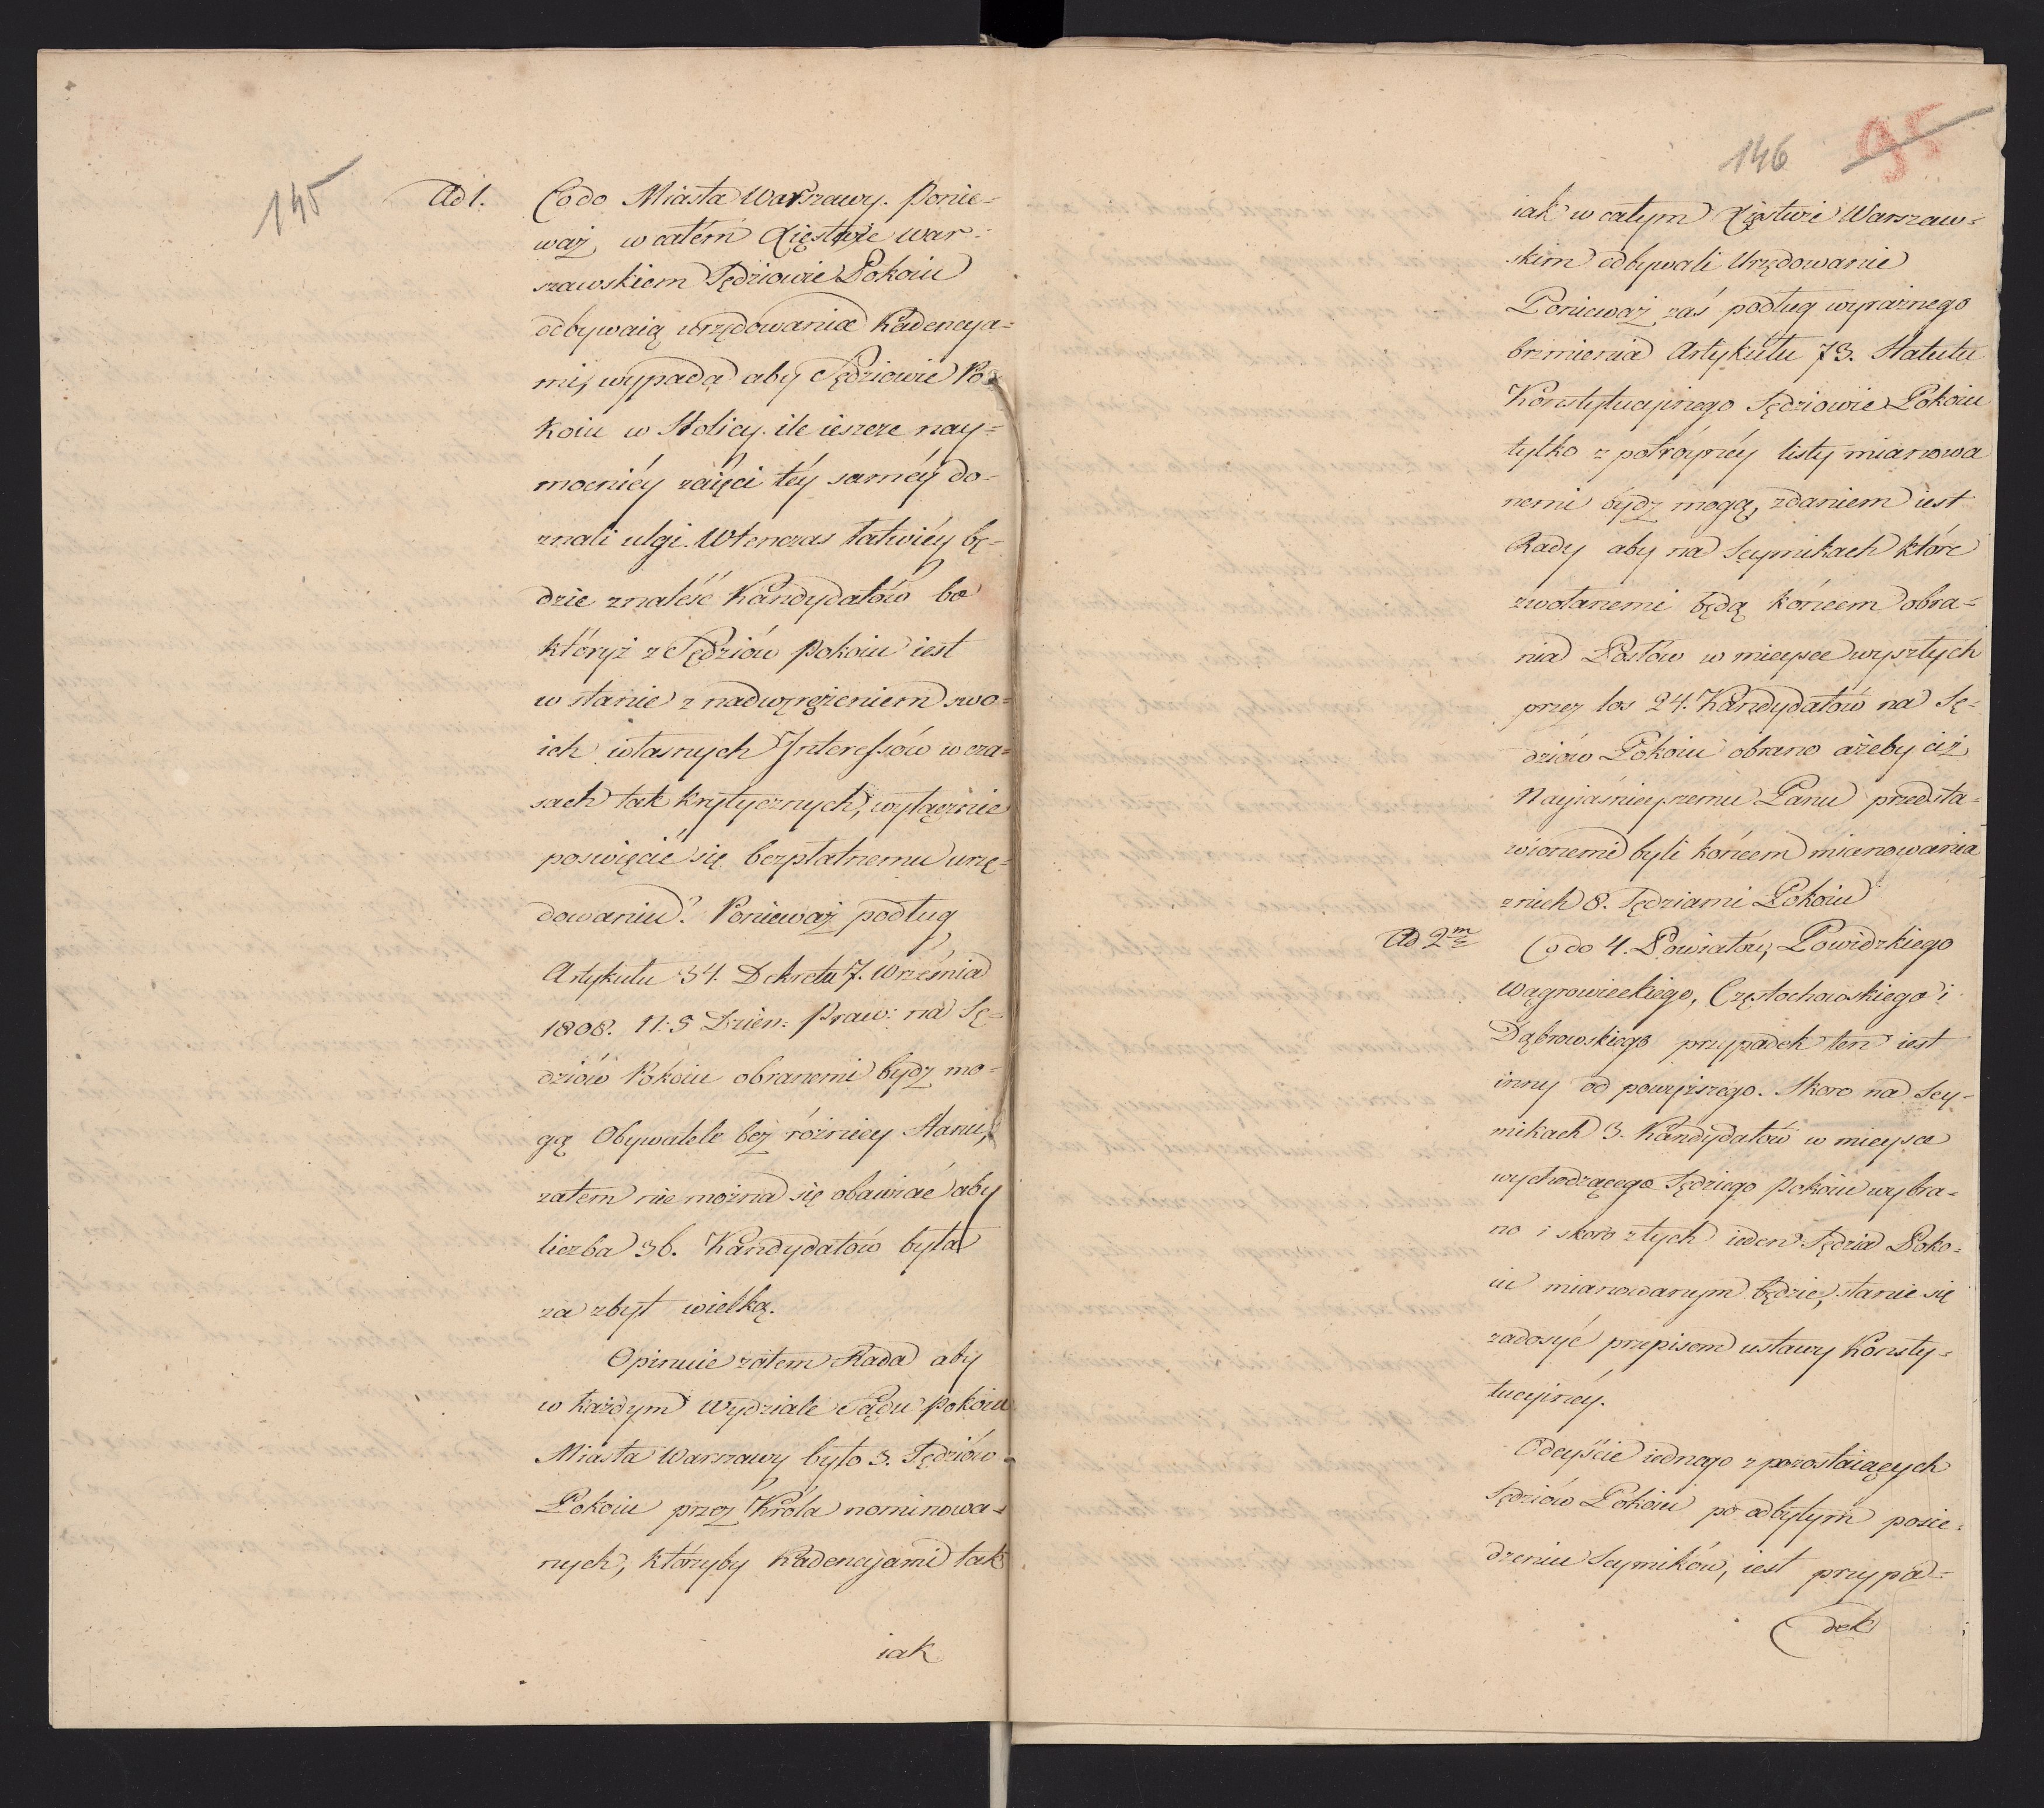 145
Ad 1. Co do Miasta Warszawy. Ponie=
waż, w całém Xięstwie War=
szawskiem Sędziowie Pokoiu
odbywaią urzędowania Kadencya=
mi, wypada aby Sędziowie Po=
koiu w Stolicy ile ieszcze nay=
mocniéy zaięci téy saméy do=
znali ulgi. Wtenczas łatwiéy bę=
dzie znaleść Kandydatów bo
któryż z Sędziów Pokoiu iest
w stanie z nadwyrężeniem swo=
ich własnych Interessów w cza=
sach tak krytycznych, wyłącznie
poswięcić się bezpłatnemu urzę=
dowaniu? Ponieważ podług
Artykułu 34. Dekretu 7. Września
1808. N: 5 Dzien: Praw: na Sę=
dziów Pokoiu obranemi bydz mo=
gą Obywatele bez różnicy Stanu,
zatem nie można się obawiać aby
liczba 36. Kandydatów była
za zbyt wielką.
Opinuie zatem Rada aby
w każdym Wydziale Sądu Pokoiu
Miasta Warszawy było 3. Sędziów
Pokoiu przez Króla nominowa=
nych, którzyby Kadencyami tak
iak
146 95
iak w całym Xięstwie Warszaw=
skim odbywali Urzędowanie
Ponieważ zaś podług wyraźnego
brzmienia Artykułu 73. Statutu
Konstytucyinego Sędziowie Pokoiu
tylko z potróynéy listy mianowa
nemi bydz mogą, zdaniem iest
Rady aby na Seymikach które
zwołanemi będą końcem obra=
nia Posłów w mieysce wyszłych
przez los 24. Kandydatów na Sę=
dziów Pokoiu obrano ażeby ciż
Nayiaśnieyszemu Panu przedsta=
wionemi byli końcem mianowania
z nich 8. Sędziami Pokoiu
Ad 2m Co do 4. Powiatów, Powidzkiego
Wągrowieckiego, Częstochowskiego i
Dąbrowskiego przypadek ten iest
inny od powyższego. Skoro na Sey=
mikach 3. Kandydatów w mieysce
wychodzącego Sędziego Pokoiu wybra=
no i skoro z tych ieden Sędzia Poko=
iu mianowanym będzie, stanie się
zadosyć przepisom ustawy Konsty=
tucyinéy.
Odeyście iednego z pozostaiących
Sędziów Pokoiu po odbytym posie=
dzeniu Seymików, iest przypa=
dek